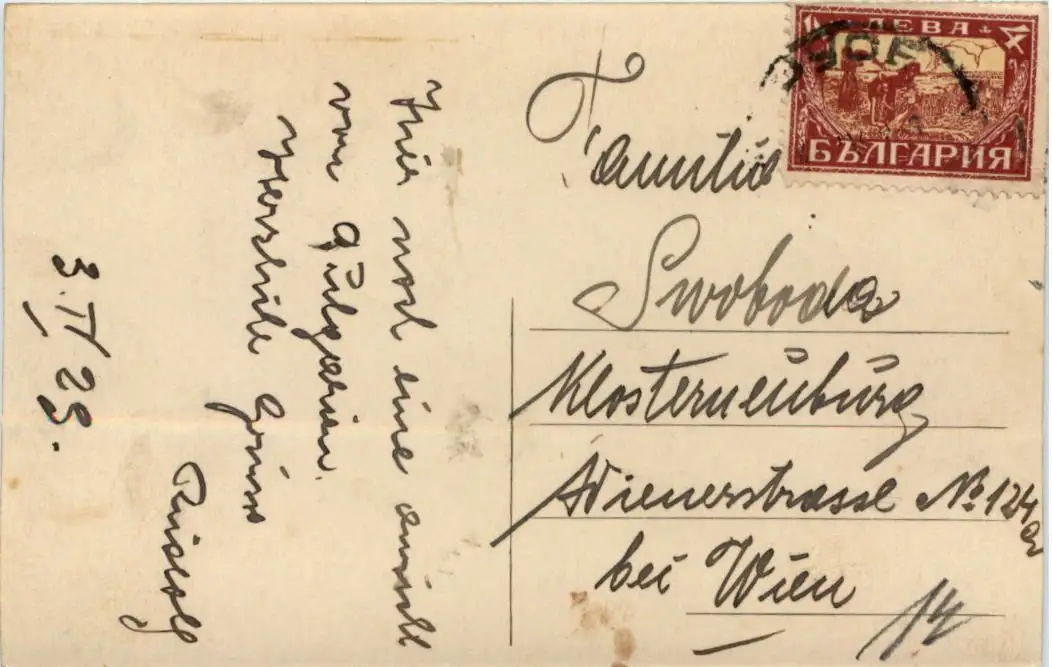 Hier noch eine ansicht
von Bulgarien.
Herzliche Grüsse
Rudolf
3. IV 28.
4 ЛЕВА 4
БЪЛГАРИЯ
Familie
Swoboda
Klosterneuburg
Wienerstrasse No 124a
bei Wien